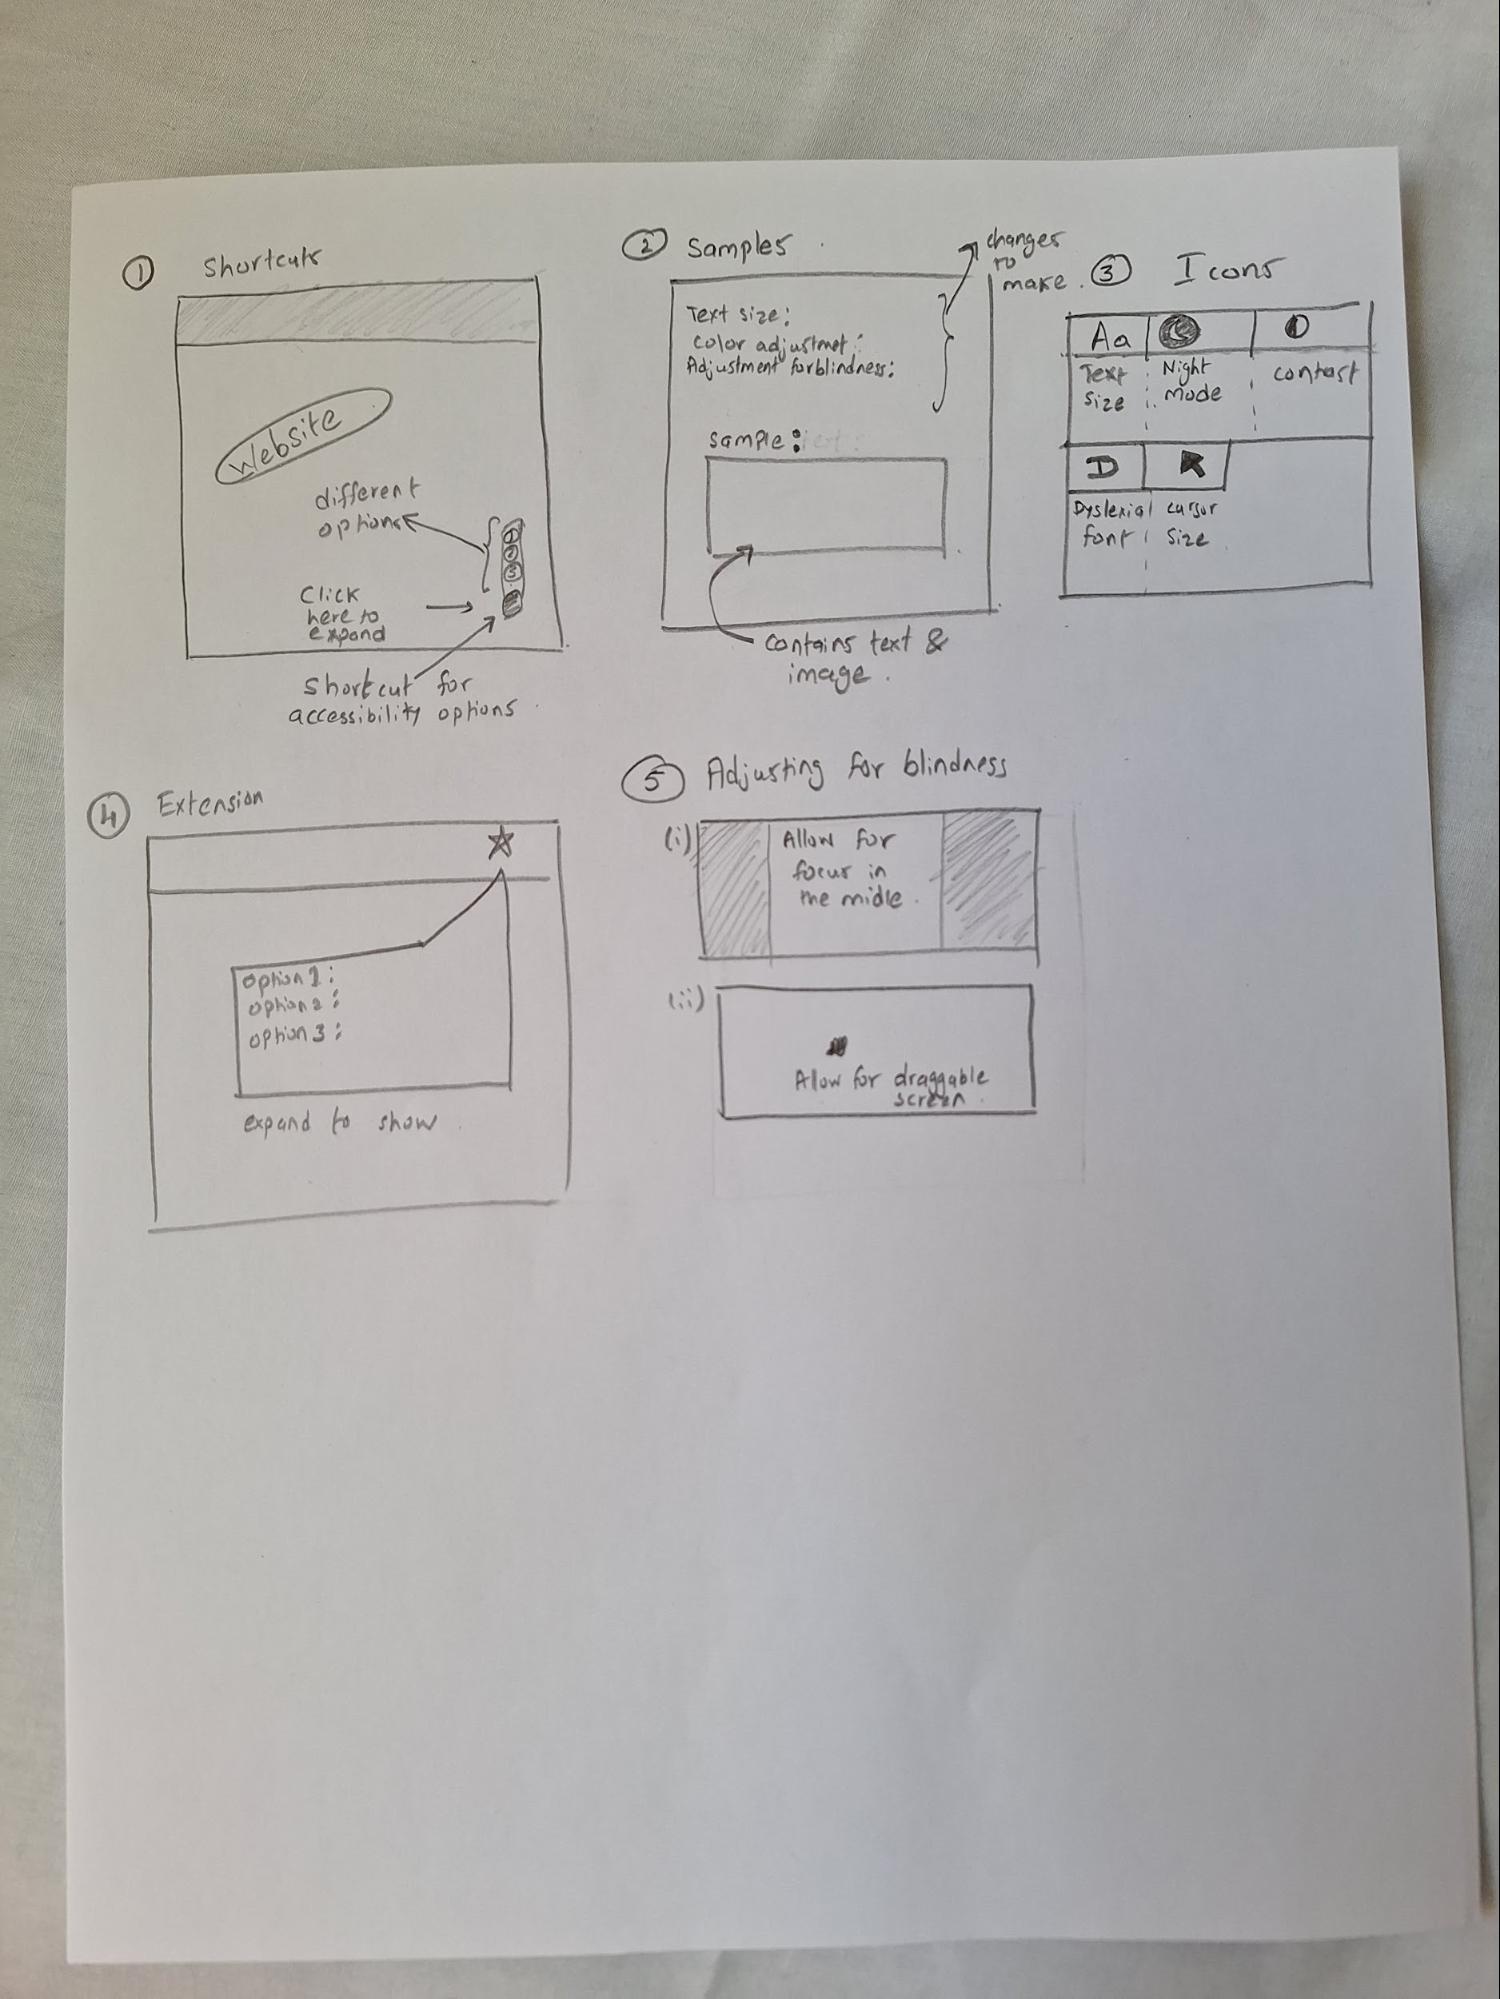 1 Shortcuts
Website
different
options
1
2
3
Click
here to
expand
Shortcut for
accessibility options
2 Samples
changes
to
make.
Text size:
color adjustmet:
Adjustment for blindness:
Sample:
contains text &
image.
3 Icons
Aa
Text
size
Night
mode
contast
D
Dyslexial
font
cursor
size
4 Extension
option 1:
option 2:
option 3:
expand to show
5 Adjusting for blindness
(i)
Allow for
focus in
the midle.
(ii)
Allow for draggable
screen.